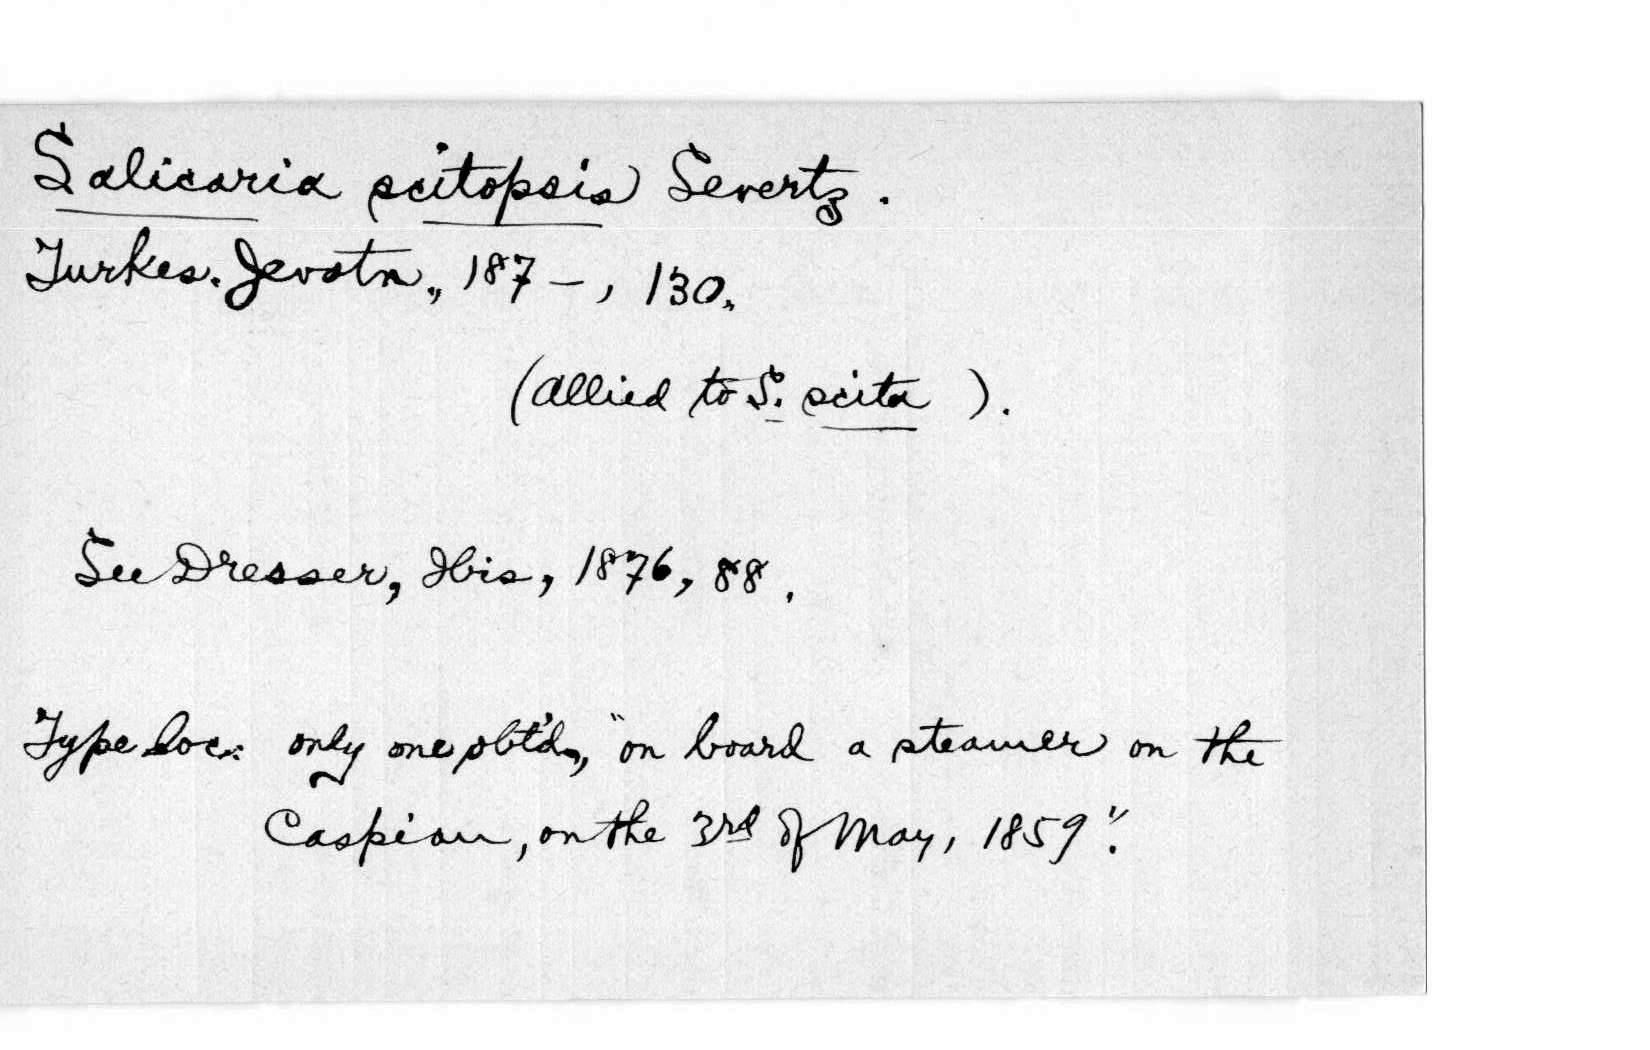 Salicaria scitopsis Severtz.
Turkes. Jevotn., 187-, 130.
(allied to S. scita ).
See Dresser, Ibis, 1876, 88.
Type loc.: only one obt'd., "on board a steamer on the
Caspian, on the 3rd of May, 1859".